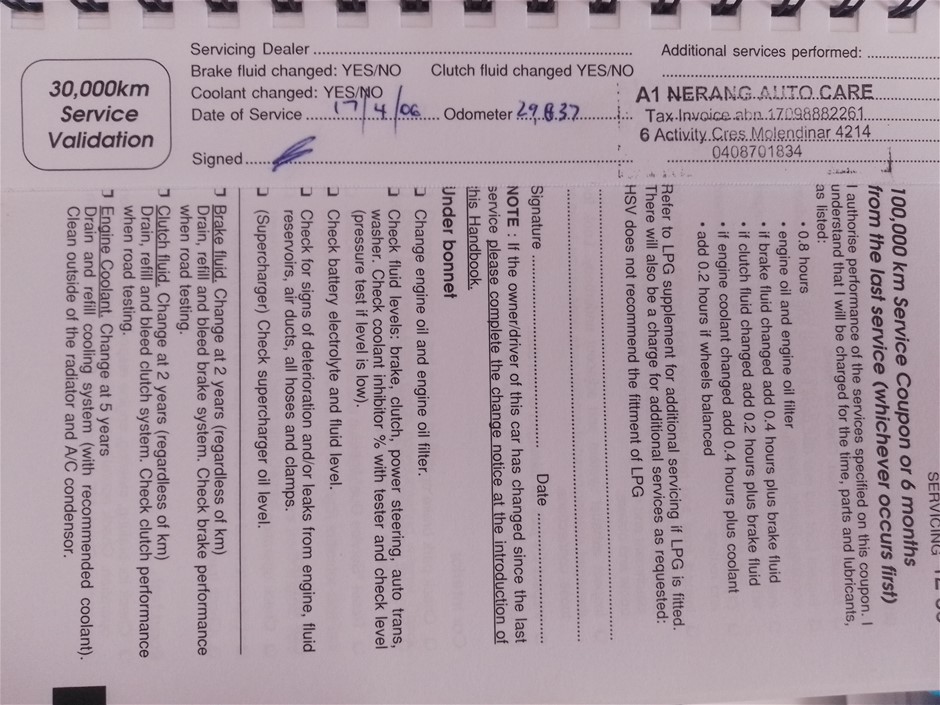 30,000km
Service
Validation
Servicing Dealer
Brake fluid changed: YES/NO Clutch fluid changed YES/NO
Coolant changed: YES/NO
Date of Service 17/4/06 Odometer 29,837
Signed
Additional services performed:
A1 NERANG AUTO CARE
Tax Invoice abn 17098882261
6 Activity Cres Molendinar 4214
0408701834
SERVICING
100,000 km Service Coupon or 6 months
from the last service (whichever occurs first)
I authorise performance of the services specified on this coupon. I
understand that I will be charged for the time, parts and lubricants,
as listed:
• 0.8 hours
• engine oil and engine oil filter
• if brake fluid changed add 0.4 hours plus brake fluid
• if clutch fluid changed add 0.2 hours plus brake fluid
• if engine coolant changed add 0.4 hours plus coolant
• add 0.2 hours if wheels balanced
Refer to LPG supplement for additional servicing if LPG is fitted.
There will also be a charge for additional services as requested:
HSV does not recommend the fittment of LPG
Signature Date
NOTE : If the owner/driver of this car has changed since the last
service please complete the change notice at the introduction of
this Handbook.
Under bonnet
❑ Change engine oil and engine oil filter.
❑ Check fluid levels: brake, clutch, power steering, auto trans,
washer. Check coolant inhibitor % with tester and check level
(pressure test if level is low).
❑ Check battery electrolyte and fluid level.
❑ Check for signs of deterioration and/or leaks from engine, fluid
reservoirs, air ducts, all hoses and clamps.
❑ (Supercharger) Check supercharger oil level.
❑ Brake fluid. Change at 2 years (regardless of km)
Drain, refill and bleed brake system. Check brake performance
when road testing.
❑ Clutch fluid. Change at 2 years (regardless of km)
Drain, refill and bleed clutch system. Check clutch performance
when road testing.
❑ Engine Coolant. Change at 5 years
Drain and refill cooling system (with recommended coolant).
Clean outside of the radiator and A/C condensor.